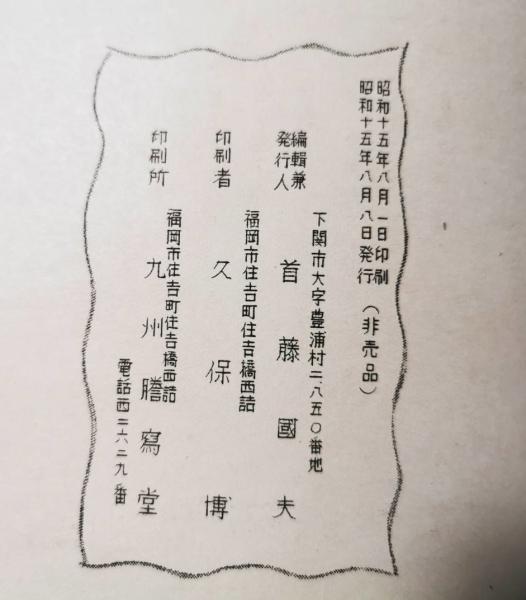 昭和十五年八月一日印刷
昭和十五年八月八日発行
(非売品)
下関市大字豊浦村二、八五〇番地
編輯兼
発行人
首藤國夫
福岡市住吉町住吉橋西詰
印刷者
久保博
福岡市住吉町住吉橋西詰
印刷所
九州謄寫堂
電話西二六二九番